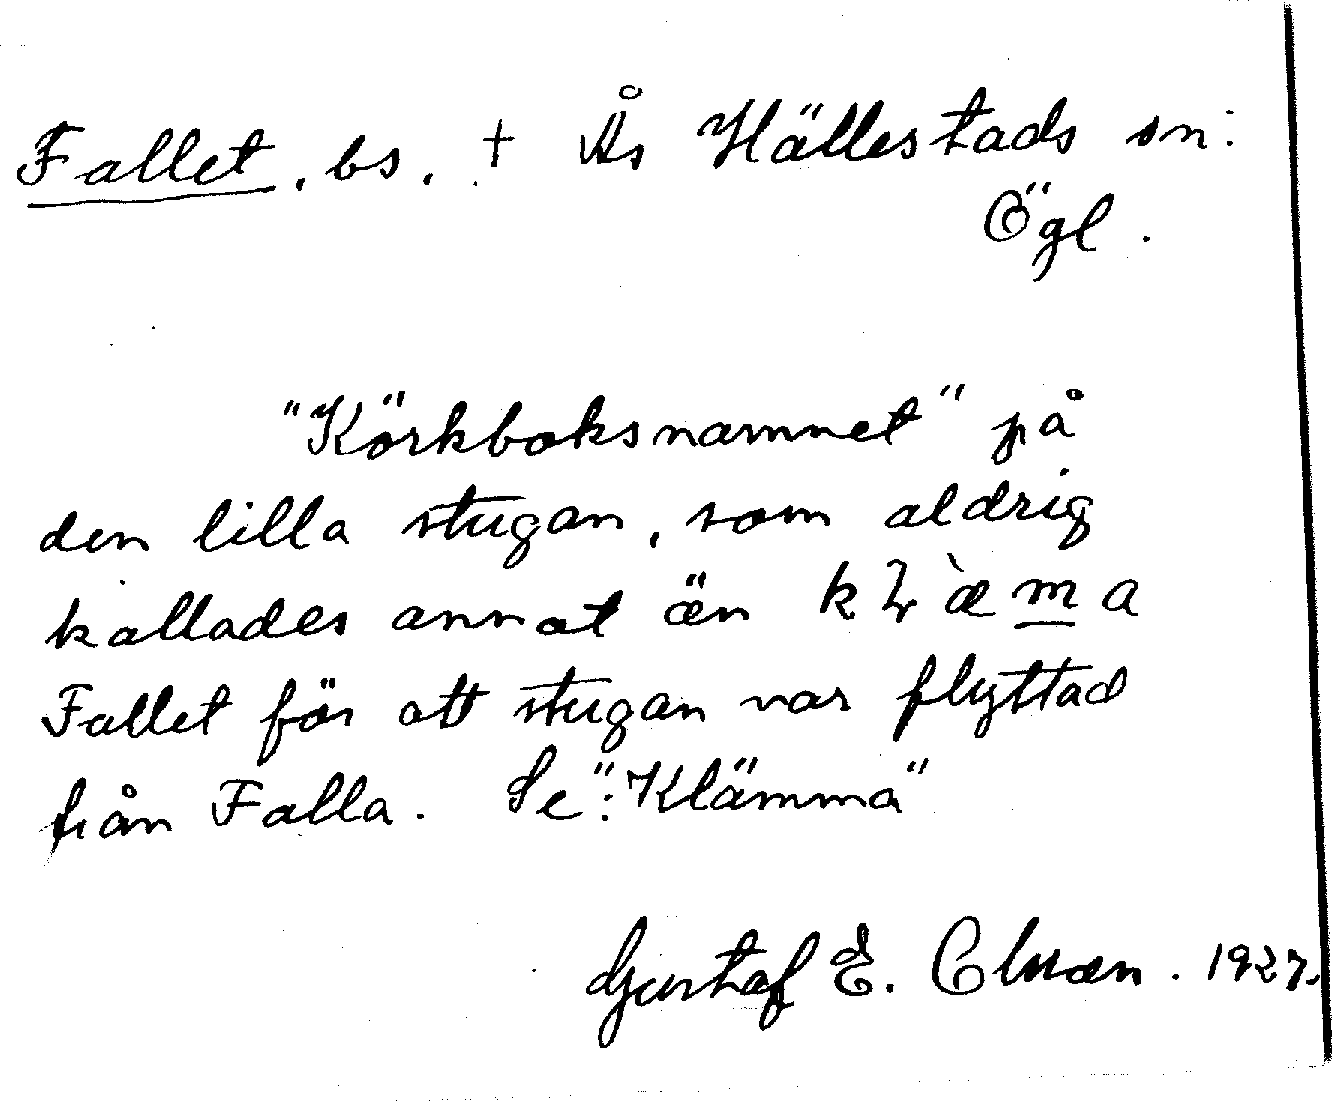 Fallet, bs, † Ås Hällestads sn:
Ögl.
"Körkboksnamnet" på
den lilla stugan, som aldrig
kallades annat än
Fallet för att stugan var flyttad
från Falla. Se: "Klämma"
Gustaf E. 1927.